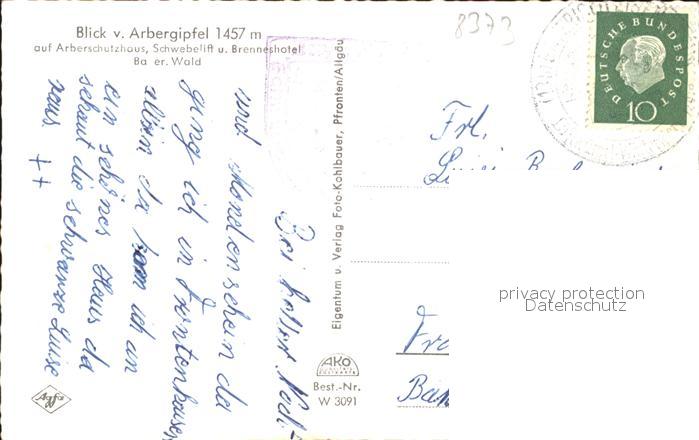 Blick v. Arbergipfel 1457 m
auf Arberschutzhaus, Schwebelift u. Brenneshotel
Ba er. Wald
8373
DEUTSCHE BUNDESPOST
10
Bei hellster
und Mondenschein da
ging ich in
allein da kam ich an
ein schönes Haus da
schaut die schwarze Luise
raus ++
Eigentum u. Verlag Foto-Kohlbauer, Pfronten/Allgäu
Frl.
AKO
Best.-Nr.
W 3091
Agfa
privacy protection
Datenschutz